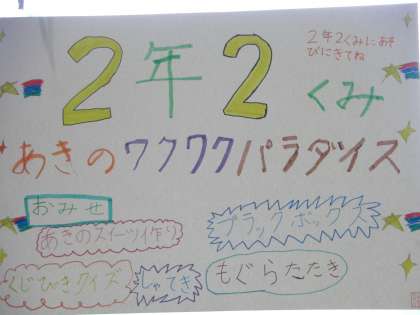 2年2くみ
2年2くみにあそ
びにきてね
あきのワクワクパラダイス
おみせ
あきのスイーツ作り
ブラックボックス
くじびきクイズ
しゃてき
もぐらたたき